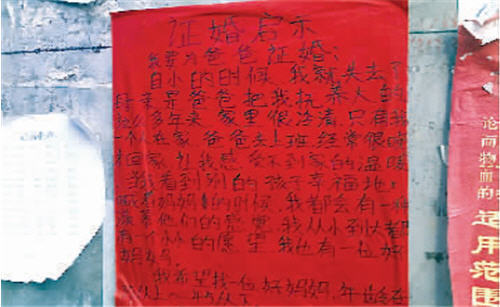 证婚启示
我要为爸爸证婚:
自小的时候,我就失去了
母亲是爸爸把我抚养大的
么多年来 家里很冷清,只有我
一个人在家,爸爸去上班经常很晚
才回家,让我感受不到家的温暖
当我看到别的孩子幸福地
着妈妈的时候,我都会有一种
羡慕他们的感觉,我从小到大都
有个小小的愿望,我也有一位好
妈妈。
我希望找一位好妈妈,年龄在
以上
适用范围